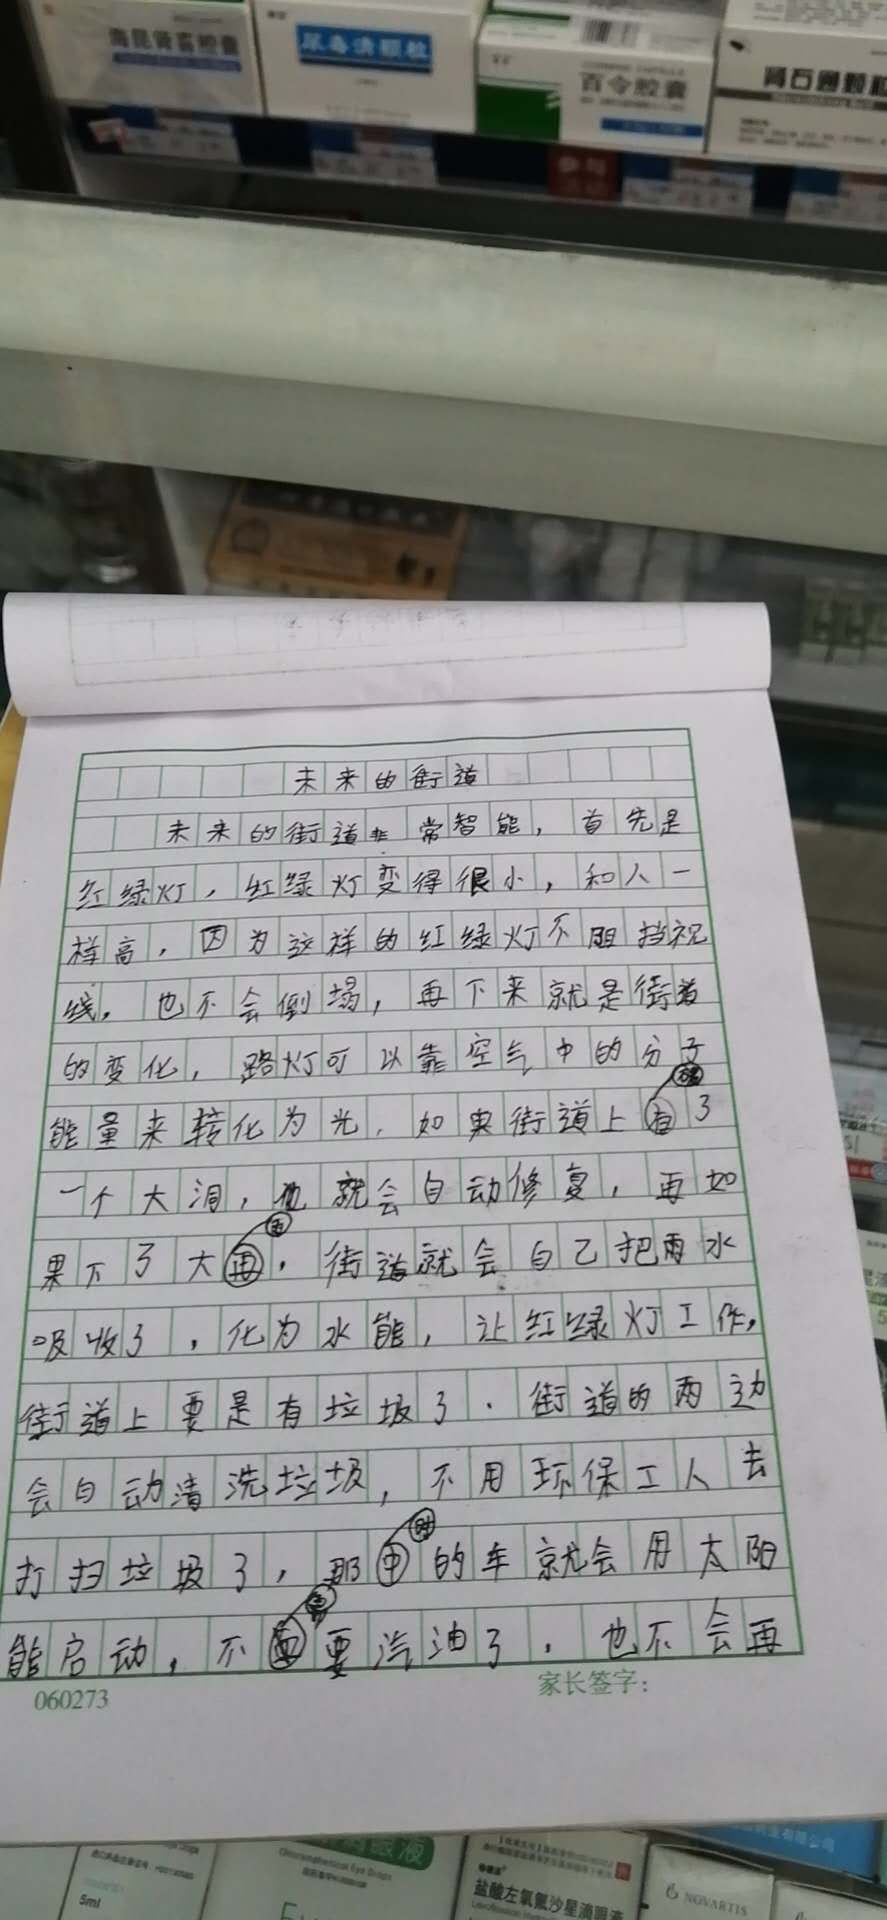 海昆肾喜胶囊
尿毒清颗粒
百令胶囊
肾石通颗粒
参与
未来的街道
未来的街道非常智能，首先是
红绿灯，红绿灯变得很小，和人一
样高，因为这样的红绿灯不阻挡视
线，也不会倒塌，再下来就是街道
的变化，路灯可以靠空气中的分子
能量来转化为光，如果街道上有破了
一个大洞，他就会自动修复，再如
果下了大再雨，街道就会自己把雨水
吸收了，化为水能，让红绿灯工作，
街道上要是有垃圾了，街道的两边
会自动清洗垃圾，不用环保工人去
打扫垃圾了，那中时的车就会用太阳
能启动，不需要汽油了，也不会再
060273
家长签字：
滴眼液
5ml
盐酸左氧氟沙星滴眼液
NOVARTIS
有限公司